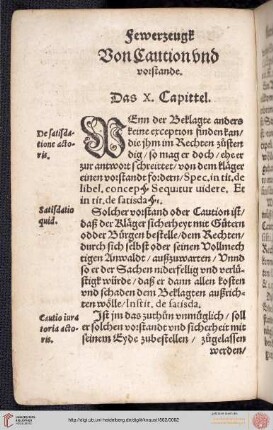 Fewerzeugk
Von Caution vnd
vorstande.
Das X. Capittel.
De satisda-
tione acto-
ris.
WEnn der Beklagte anders
keine exception finden kan/
die jhm im Rechten züsten
dig / so mag er doch / ehe er
zur antwort schreittet / von dem kläger
einen vorstandt fordern / Spec. in tit. de
libel. concep. § Sequitur uidere. Et
in tit. de satisda §.
Satisdatio
quid.
Solcher vorstand oder Caution ist /
daß der Kläger sicherheyt mit Gütern
odder Bürgen bestelle / dem Rechten /
durch sich selbst oder seinen Vollmech
tigen Anwaldt / außzuwarten / Vnnd
so er der Sachen niderfellig vnd verlü-
stigk würde / daß er dann allen kosten
vnd schaden dem Beklagten außrich-
ten wölle / Instit. de satisda.
Cautio iura
toria acto-
ris.
Ist jm das zuthün vnmüglich / soll
er solchen vorstandt vnd sicherheit mit
seinem Eyde zubestellen / zügelassen
werden/